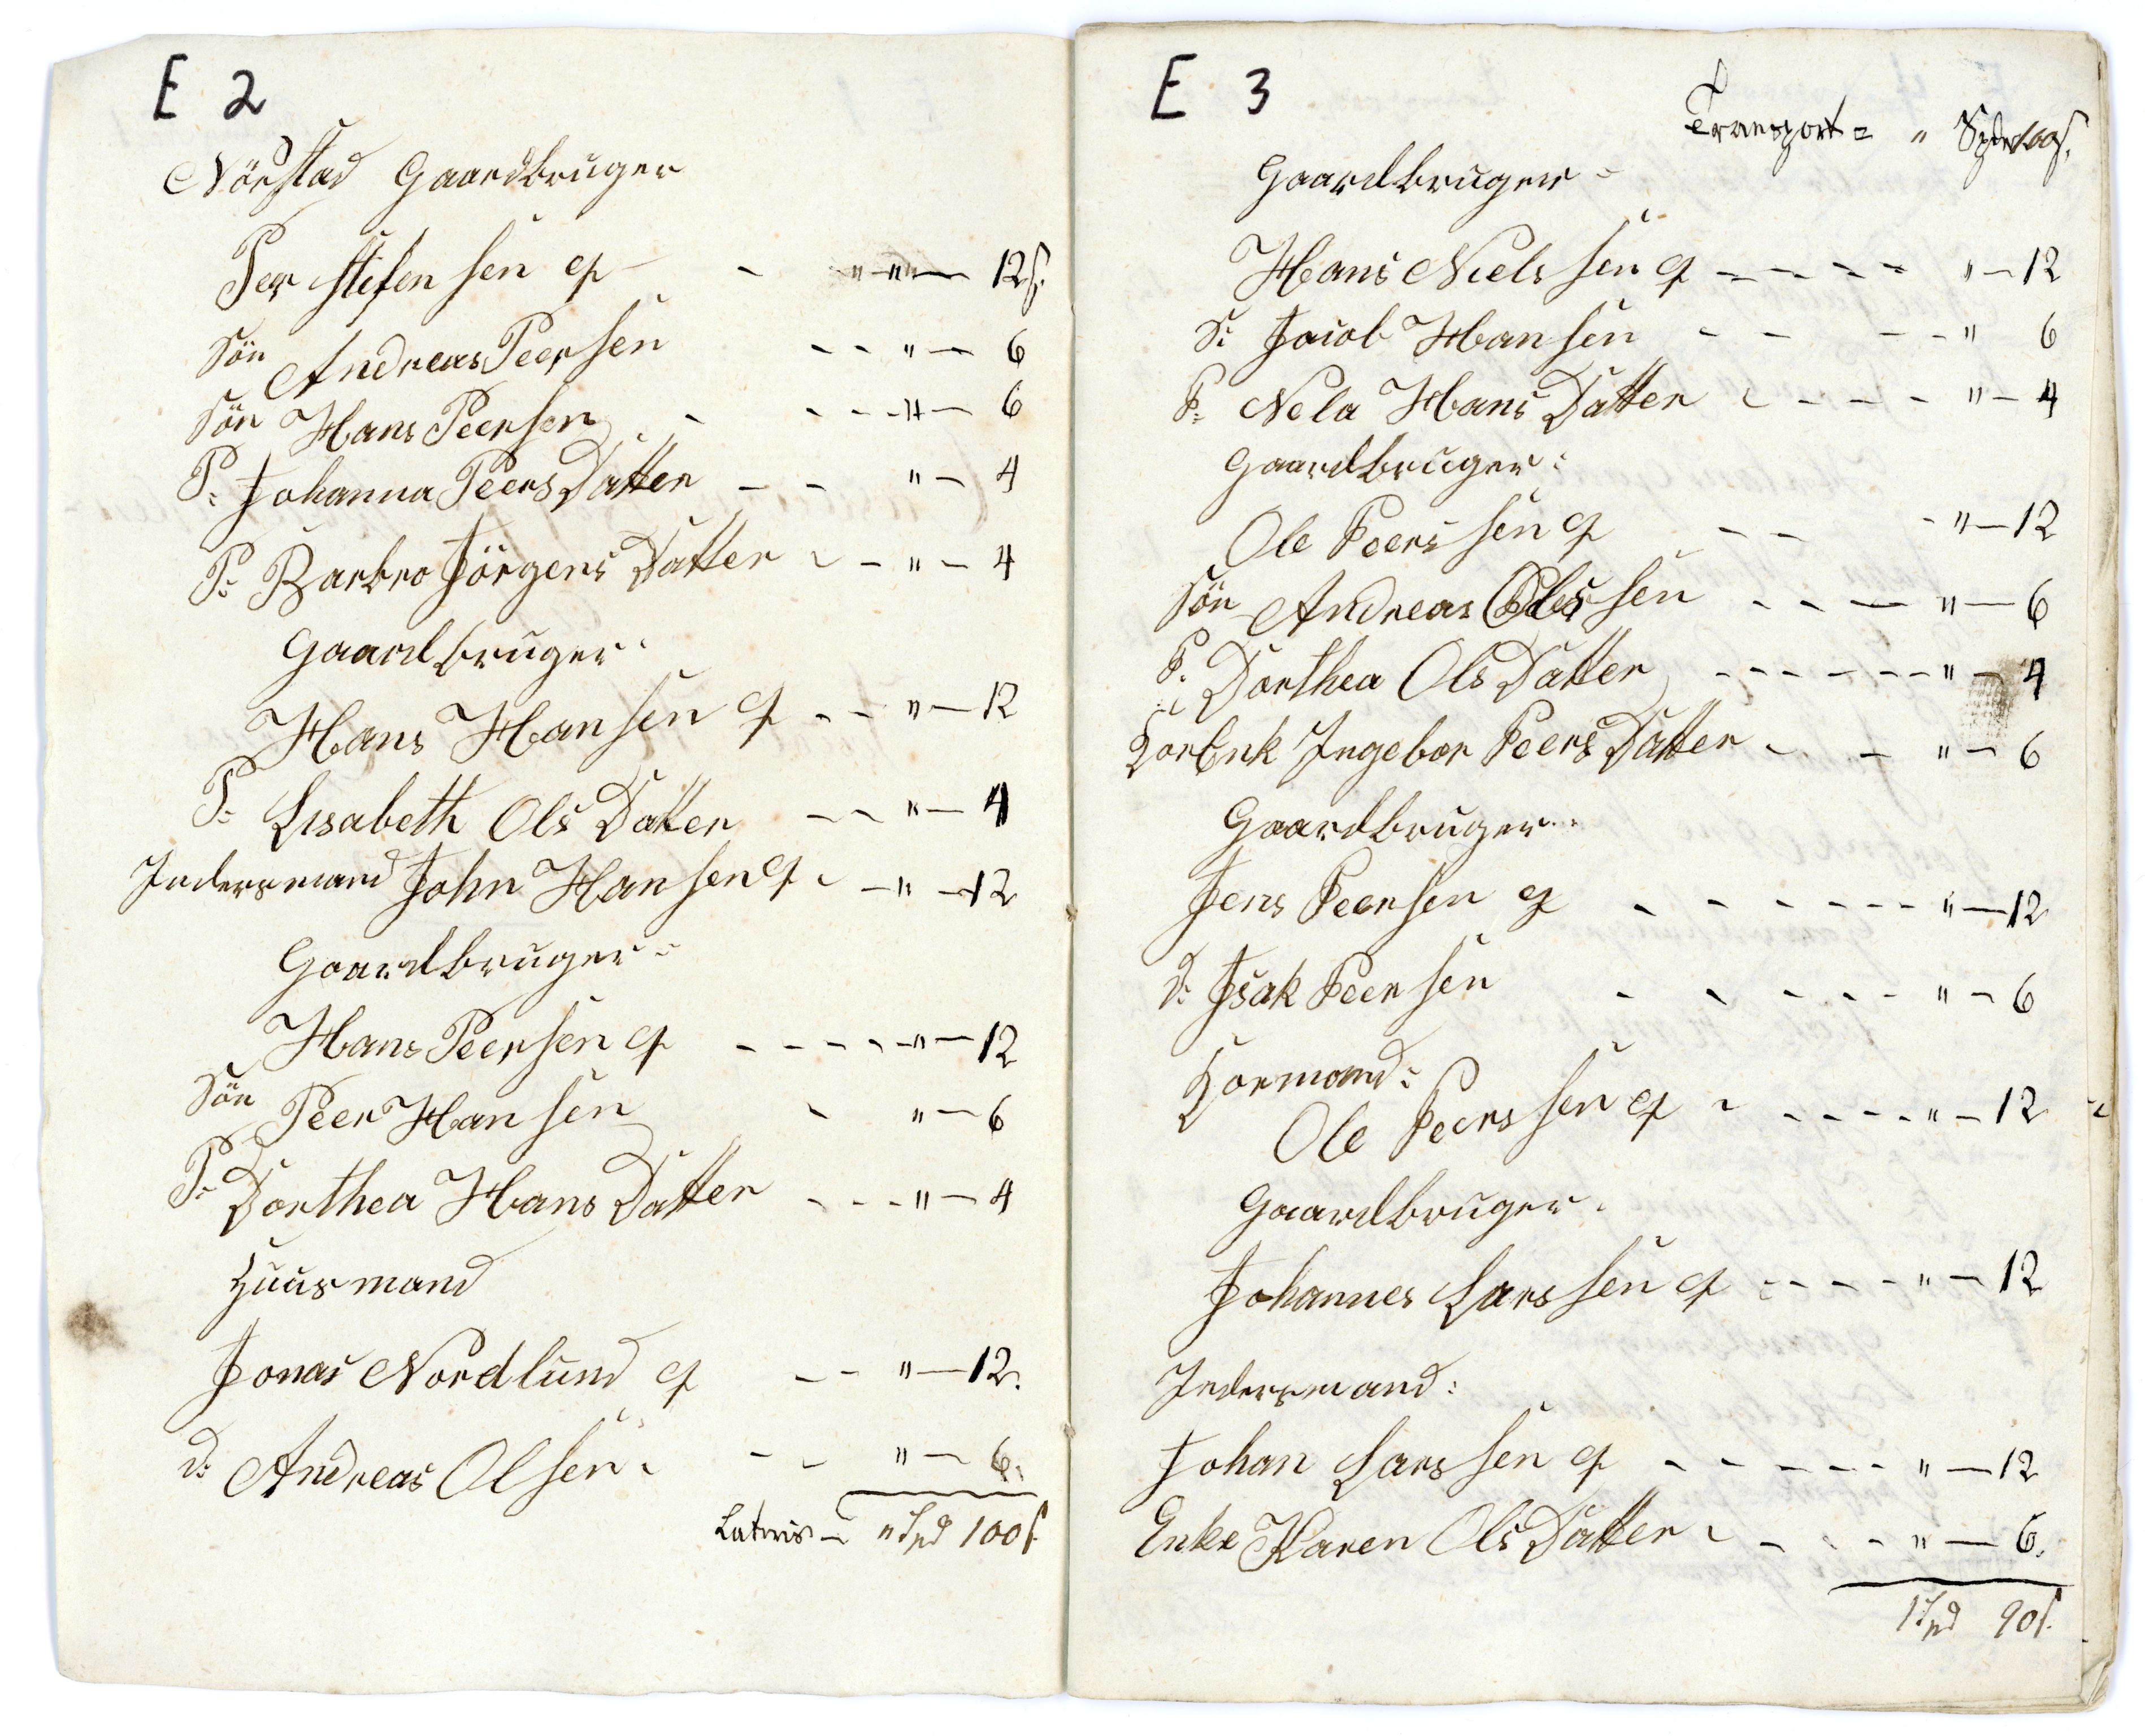 E 2
Nörstad Gaardbruger
Per Stefensen cp - - " - " - 12 s.
Sön Andreas Peersen - - " - 6
Sön Hans Peersen - - - - " - 6
P: Johanna Peers Datter - - " - 4
P: Barbro Jörgens Datter - - " - 4
Gaardbruger
Hans Hansen cp - - " - 12
P: Lisabeth Ols Datter - - " - 4
Inderstmand John Hansen cp - - " - 12
Gaardbruger =
Hans Peersen cp - - - - - " - 12
Sön Peer Hansen - " - 6
P: Dorthea Hans Datter - - - " - 4
Huusmand
Jonas Nordlund cp - - " - 12.
d: Andreas Olsen - - - " - 6.
Lateris - " Spd 100 s.
E 3
Transport = " Spd 100 s.
Gaardbruger =
Hans Nielssen cp - - - - " - 12
S: Jacob Hansen - - - - " 6
P: Nela Hans Datter - - - - " - 4
Gaardbruger:
Ole Peerssen cp - - - " - 12
Sön Andreas Olessen - - - " - 6
P: Dorthea Ols Datter - - - - - - " - 4
Kor Enk Ingebor Peers Datter - - " - 6
Gaardbruger
Jens Peersen cp - - - - - - - " - 12
d: Isak Peersen - - - - - - " - 6
Kormand:
Ole Peerssen cp - - - - - " - 12
Gaardbruger.
Johannes Larssen cp - - - - " - 12
Inderstmand:
Johan Larssen cp - - - - - - " - 12
Enke Karen Ols Datter - - - - " - 6.
1 Spd 90 s.